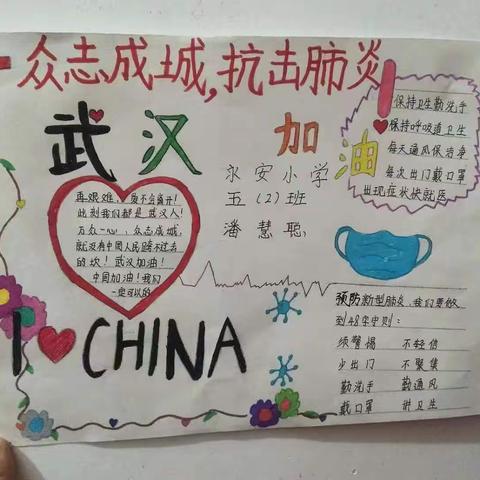 众志成城,抗击肺炎!
武汉 加油
永安小学
五(2)班
潘慧聪
保持卫生勤洗手
保持呼吸道卫生
每天通风保洁净
每次出门戴口罩
出现症状快就医
再艰难,
不会离开!
此刻我们都是武汉人!
万众一心、众志成城,
就没有中国人民跨不过去
的坎!武汉加油!
中国加油!我们
一定可以的
I CHINA
预防新型肺炎、我们要做
到48字守则:
须警惕 不轻信
少出门 不聚集
勤洗手 勤通风
戴口罩 讲卫生